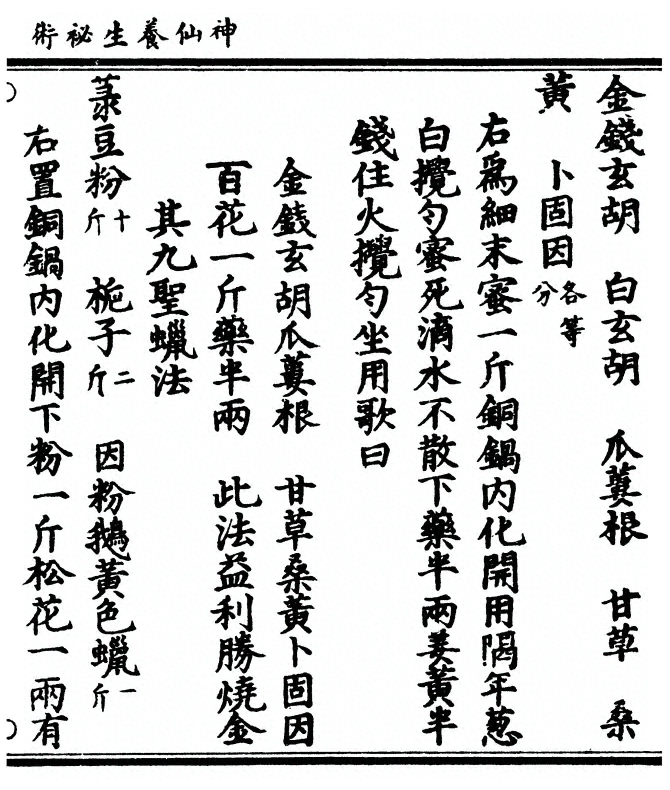 神仙養生祕術
金錢玄胡　白玄胡　瓜蔞根　甘草　桑
黃　卜固因各等分
右爲細末蜜一斤銅鍋内化開用隔年蔥
白攪勻蜜死滴水不散下藥半兩姜黃半
錢住火攪勻坐用歌曰
金錢玄胡瓜蔞根　甘草桑黃卜固因
百花一斤藥半兩　此法益利勝燒金
其九聖蠟法
菉豆粉十斤　梔子二斤　因粉鵝黃色蠟一斤
右置銅鍋内化開下粉一斤松花一兩有